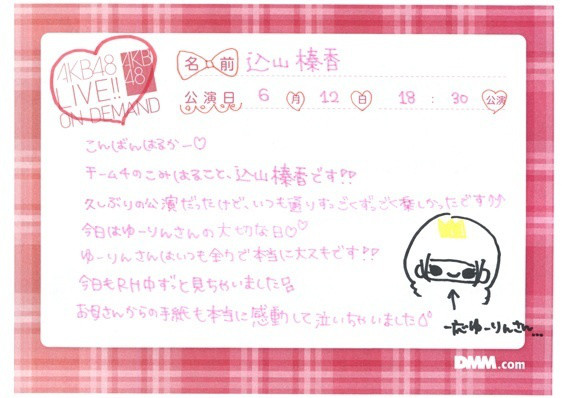 AKB48
LIVE!!
ON DEMAND
AKB
48
名前 込山榛香
公演日 6月12日 18:30公演
こんばんはるかー♡
チーム4のこみはること、込山榛香です!!
久しぶりの公演だったけど、いつも通りすっごくずっごく楽しかったです
今日はゆーりんさんの大切な日♡
ゆーりんさんはいつも全力で本当に大スキです!!
今日もRH中ずっと見ちゃいました
お母さんからの手紙も本当に感動して泣いちゃいました
ゆーりんさん...
DMM.com